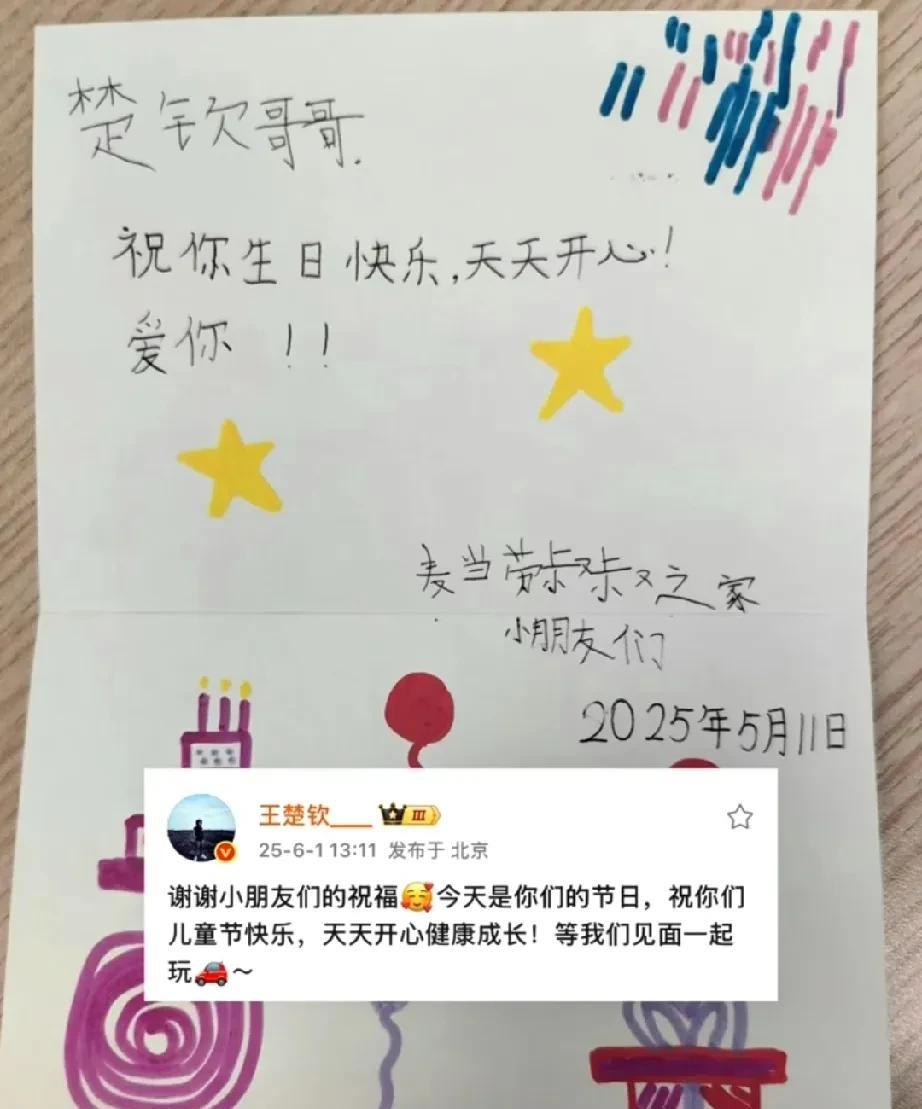 楚钦哥哥.
祝你生日快乐,天天开心!
爱你 !!
麦当劳叔叔之家
小朋友们
2025年5月11日
王楚钦___ III
25-6-1 13:11 发布于 北京
谢谢小朋友们的祝福🥰今天是你们的节日，祝你们
儿童节快乐，天天开心健康成长！等我们见面一起
玩🚗～